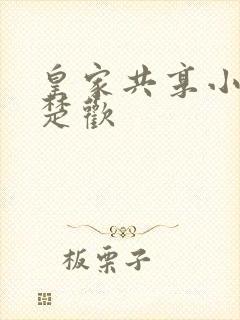 皇家共享小
楚歡
板栗子